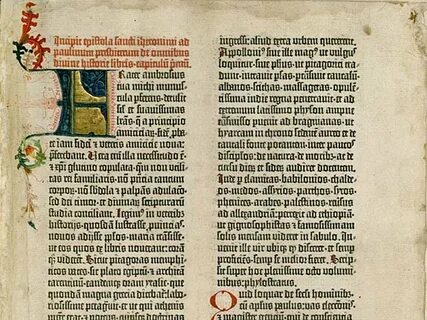 Incipit epistola sancti iheronimi ad
paulinum presbiterum de omnibus
divine historie libris·capitulū pmū.
Frater ambrosius
tua michi munuscula
pferens·detulit
sil et suavissimas
lrās·q a principio
amiciciaȝ·fidē pba-
te iam fidei et veteris amicicie nova
pferebant. Vera eni illa necessitudo ē·
et xpi glutino copulata·qm non utili-
tas rei familiaris·nō pntia tantum
corpoȝ·nō sbdola et palpās adulacō·
sed dei timor·et divinaȝ scripturaȝ
studia conciliant. Legim⁹ in veteribȝ
historijs·quosdā lustrasse puincias·
novos adijsse pplos·maria trāsisse·
ut eos quos ex libris noverant·corā
qȝ viderēt. Sicut pitagoras memphi-
ticos vates·sic plato egiptū·et architā
tarentinū·eandemqȝ oram ytalie·que
quondā magna grecia dicebat·labo-
riosissime peragvit·et ut qui athenis
mgr erat·et potens·cuiusqȝ doctrinas
ingressi·aliud extra urbem quererent.
Appolloni⁹ sive ille mag⁹ ut vulgus
loquitur·sive phus·ut pitagorici tra-
dunt·intravit psas·ptrāsivit caucasū·
albanos·scithas·massagetas·opulē-
tissima indie regna penetravit·et ad
extremum latissimo physon amne
trāsmisso puenit ad bragmanas·ut
hyarcam in throno sedentē aureo et de
tantali fonte potantem·inter paucos
discipulos·de natura·de moribȝ·ac de
cursu dierū et siderū audiret docentem.
Inde p elamitas·babilonios·chalde-
os·medos·assirios·parthos·siros·
phenices·arabes·palestinos·reversus
ad alexandriā·perrexit ad ethiopiā·
ut gignosophistas et famosissimam
solis mensam videret in sabulo. In-
venit ille vir ubiqȝ qd disceret·et sem-
per proficiens·semper se melior fieret. Scrip-
sit super hoc plenissime octo voluminibus·
phylostratus.
Quid loquar de secli hominibȝ·
cū apostolus paulus·vas electōnis·
et magister gentiū·qui de conscientia